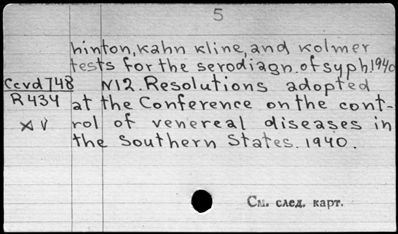 5
hinton, kahn kline, and kolmer
tests for the serodiagn. of syph. 1940
Ccvd 748 N12. Resolutions adopted
R 434 at the Conference on the cont-
rol of venereal diseases in
the Southern States. 1940.
См. след. карт.